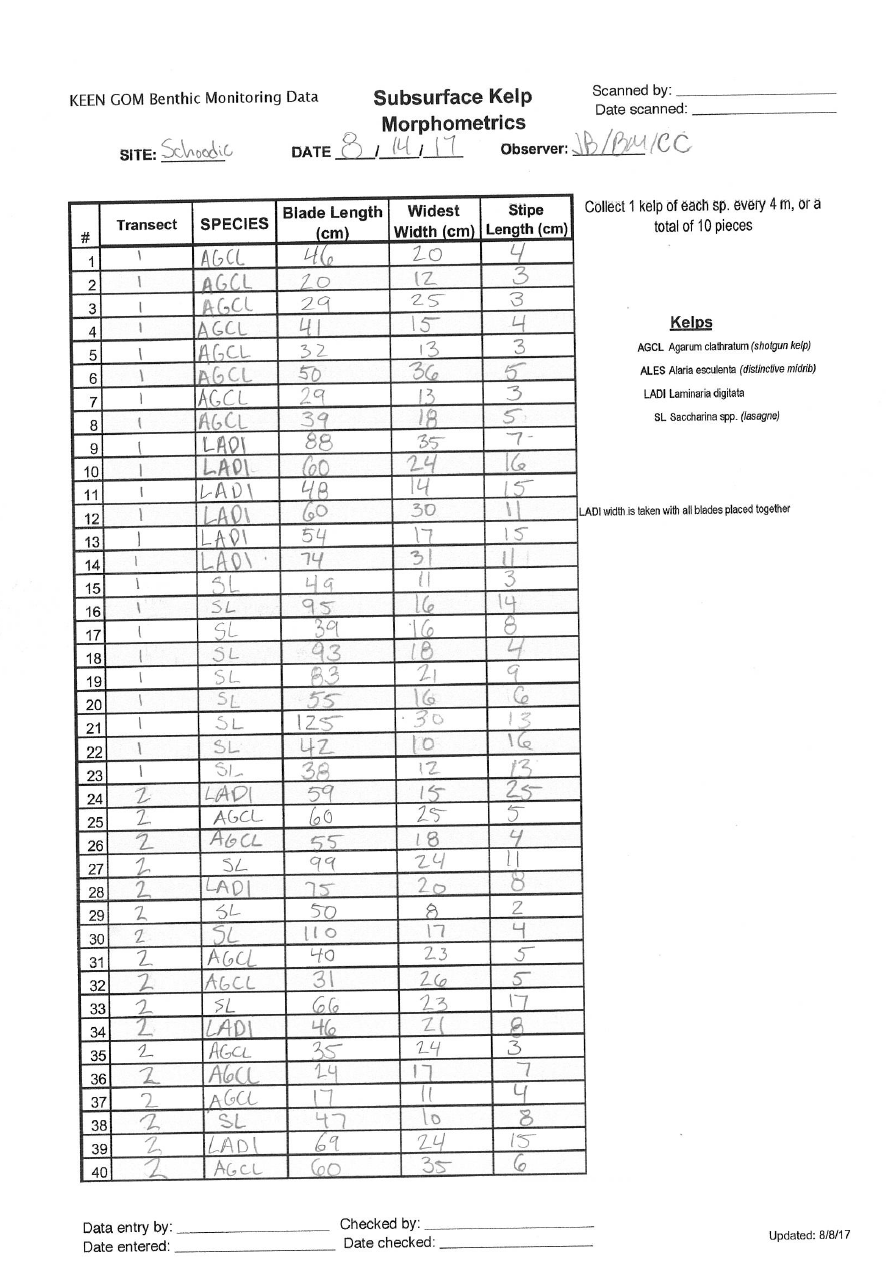 KEEN GOM Benthic Monitoring Data
Subsurface Kelp
Morphometrics
Scanned by:
Date scanned:
SITE: Schoodic DATE 8 / 14 / 17 Observer: JB/BM/CC
Collect 1 kelp of each sp. every 4 m, or a
total of 10 pieces
# Transect SPECIES Blade Length (cm) Widest Width (cm) Stipe Length (cm)
1 1 AGCL 46 20 4
2 1 AGCL 20 12 3
3 1 AGCL 29 25 3
4 1 AGCL 41 15 4
5 1 AGCL 32 13 3
6 1 AGCL 50 36 5
7 1 AGCL 29 13 3
8 1 AGCL 39 18 5
9 1 LADI 88 35 7
10 1 LADI 60 24 16
11 1 LADI 48 14 15
12 1 LADI 60 30 11
13 1 LADI 54 17 15
14 1 LADI 74 31 11
15 1 SL 49 11 3
16 1 SL 95 16 14
17 1 SL 39 16 8
18 1 SL 93 18 4
19 1 SL 83 21 9
20 1 SL 55 16 6
21 1 SL 125 30 13
22 1 SL 42 10 16
23 1 SL 38 12 13
24 2 LADI 59 15 25
25 2 AGCL 60 25 5
26 2 AGCL 55 18 4
27 2 SL 99 24 11
28 2 LADI 75 20 8
29 2 SL 50 8 2
30 2 SL 110 17 4
31 2 AGCL 40 23 5
32 2 AGCL 31 26 5
33 2 SL 66 23 17
34 2 LADI 46 21 8
35 2 AGCL 35 24 3
36 2 AGCL 24 17 7
37 2 AGCL 17 11 4
38 2 SL 47 10 8
39 2 LADI 69 24 15
40 2 AGCL 60 35 6
Kelps
AGCL Agarum clathratum (shotgun kelp)
ALES Alaria esculenta (distinctive midrib)
LADI Laminaria digitata
SL Saccharina spp. (lasagne)
LADI width is taken with all blades placed together
Data entry by: Checked by:
Date entered: Date checked:
Updated: 8/8/17